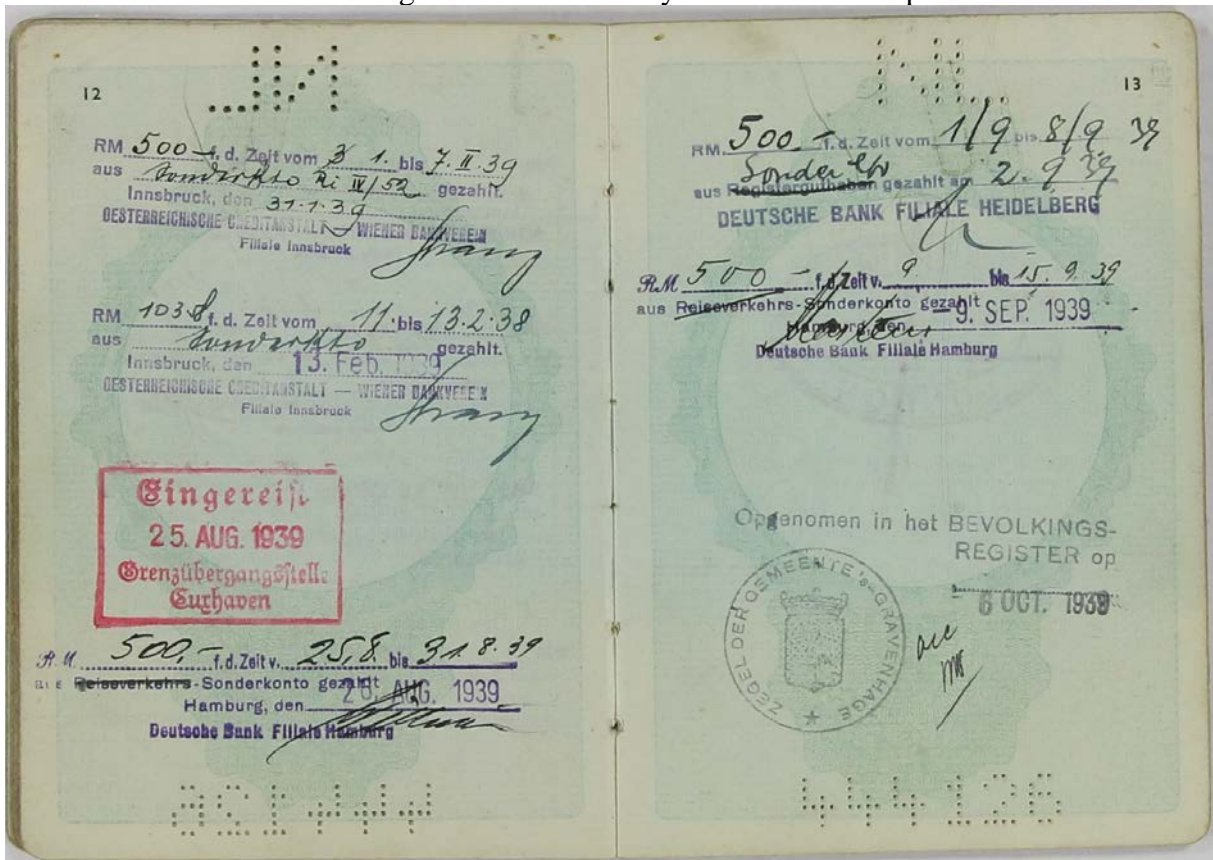 12
RM 500- f. d. Zeit vom 3 1. bis 7. II. 39
aus Sonderkto Ri IV/52 gezahlt.
Innsbruck, den 31.1.39
OESTERREICHISCHE CREDITANSTALT — WIENER BANKVEREIN
Filiale Innsbruck
RM 103.8 f. d. Zeit vom 11. bis 13.2.38
aus Sonderkto gezahlt.
Innsbruck, den 13. Feb. 1939
OESTERREICHISCHE CREDITANSTALT — WIENER BANKVEREIN
Filiale Innsbruck
Eingereist
25. AUG. 1939
Grenzübergangsstelle
Cuxhaven
R.M 500,- f.d. Zeit v. 25.8. bis 31.8.39
aus Reiseverkehrs-Sonderkonto gezahlt
Hamburg, den 26. AUG. 1939
Deutsche Bank Filiale Hamburg
NL
13
RM. 500 - f.d. Zeit vom 1/9 bis 8/9 39
Sonder
aus Registerguthaben gezahlt am 2. 9 39
DEUTSCHE BANK FILIALE HEIDELBERG
R.M 500 - f.d. Zeit v. 9 bis 15. 9. 39
aus Reiseverkehrs-Sonderkonto gezahlt
Hamburg, den -9. SEP. 1939
Deutsche Bank Filiale Hamburg
Opgenomen in het BEVOLKINGS-
REGISTER op
6 OCT. 1939
ZEGEL DER GEMEENTE 's-GRAVENHAGE
444126